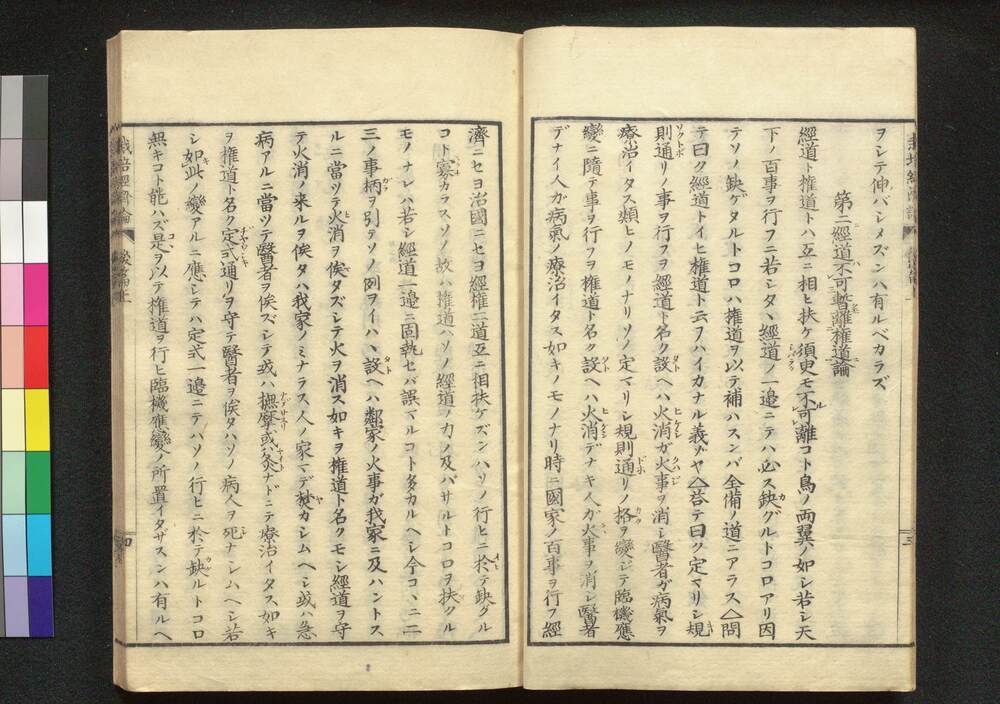 ヲシテ伸バシメズンハ有ルベカラズ
第二經道不可暫離權道論
經道ト權道トハ互ニ相ヒ扶ケ須臾モ不可離コト鳥ノ両翼ノ如シ若シ天
下ノ百事ヲ行フニ若シタヾ經道ノ一邊ニテハ必ス缺グルトコロアリ因
テソノ缺ゲタルトコロハ權道ヲ以テ補ハスンバ全備ノ道ニアラス△問
テ曰ク經道トイヒ權道ト云フハイカナル義ゾヤ△荅テ曰ク定マリシ規
則通リノ事ヲ行フヲ經道ト名ク設ヘハ火消ガ火事ヲ消シ醫者ガ病氣ヲ
療治イタス類ヒノモノナリソノ定マリシ規則通リノ格ヲ變ジテ臨機應
變ニ隨テ事ヲ行フヲ權道ト名ク設ヘハ火消デナキ人ガ火事ヲ消シ醫者
デナイ人ガ病氣ノ療治イタス如キノモノナリ時ニ國家ノ百事ヲ行フ經
濟ニセヨ治國ニセヨ經權二道互ニ相扶ケズンハソノ行ヒニ於テ缺グル
コト寡カラスソノ故ハ權道ハソノ經道ノ力ノ及バサルトコロヲ扶クル
モノナレハ若シ經道一邊ニ固執セバ誤マルコト多カルヘシ今コヽニ二
三ノ事柄ヲ引テソノ例ヲイハヽ設ヘハ鄰家ノ火事ガ我家ニ及ハントス
ルニ當ツテ火消ヲ俟タズシテ火ヲ消ス如キヲ權道ト名クモシ經道ヲ守
テ火消ノ来ルヲ俟タハ我家ノミナラス人ノ家マデ焚カシムヘシ或ハ急
病アルニ當ツテ醫者ヲ俟ズシテ或ハ撫摩或ハ灸ナドニテ療治イタス如キ
ヲ權道ト名ク定式通リヲ守テ醫者ヲ俟タハソノ病人ヲ死ナシムヘシ若
シ如此ノ變アルニ應シテハ定式一邊ニテハソノ行ヒニ於テ缺ルトコロ
無キコト能ハズ是ヲ以テ權道ヲ行ヒ臨機應變ノ所置イタサズンハ有ルヘ
栽培經濟論
四
三